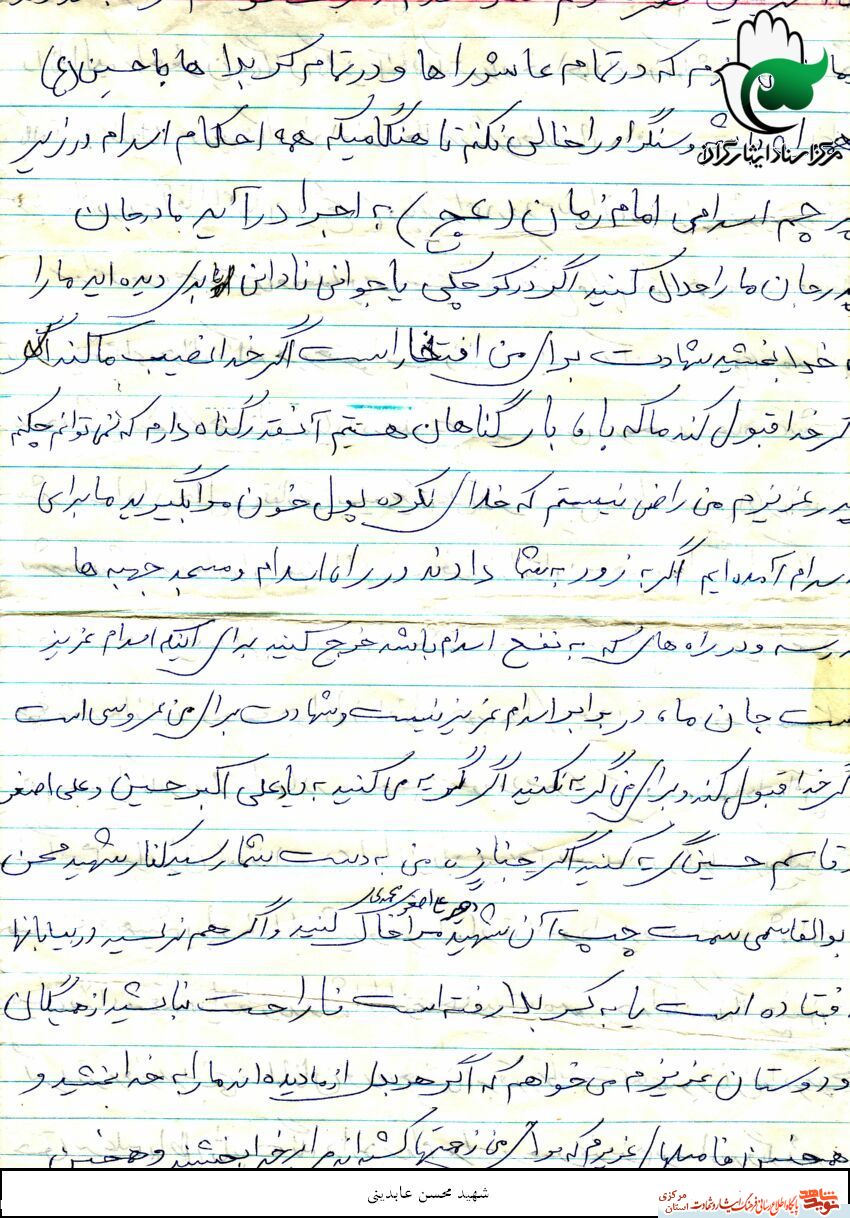 که در تمام عاشورا ها و در تمام کربلا ها با حسین (ع)
و سنگر او را خالی نکنم تا هنگامیکه همه احکام اسلام در زیر
پرچم اسلامی امام زمان (عج) به اجرا در آید مادر جان
پدر جان ما را حلال کنید اگر در کوچکی یا جوانی نادانی بدی دیده اید ما را
خدا بخشید شهادت برای من افتخار است اگر خدا نصیب ما کند اگر
گر خدا قبول کند ما که با بار گناهان هستیم آنقدر گناه دارم که نمی توانم چکنم
پدر عزیزم من راضی نیستم که خدای نکرده پول خون مرا بگیرید ما برای
اسلام آمده ایم اگر به زور به شما دادند در راه اسلام و مسجد جبهه ها
مدرسه و در راه های که به نفع اسلام باشد خرج کنید برای اینکه اسلام عزیز
است جان ما، در برابر اسلام عزیز نیست و شهادت برای من عروسی است
گر خدا قبول کند و برای من گریه نکنید اگر گریه می کنید به یاد علی اکبر حسین و علی اصغر
و قاسم حسین گریه کنید اگر جنازه من به دست شما رسید کنار شهید محسن
علی اصغر
بوالقاسمی سمت چپ آن شهید مرا خاک کنید و اگر هم نرسید در بیابانها
فتاده است یا به کربلا رفته است ناراحت نباشید از همگان
و دوستان عزیزم می خواهم که اگر هر بدی از ما دیده اند ما را به خدا بخشید و
همچنین فامیلهای عزیزم که برای من زحمتها کشیده اند مرا به خدا ببخشند و همچنین
مرکز اسناد ایثارگران
شهید محسن عابدینی
نوید شاهد
پایگاه اطلاع رسانی فرهنگ ایثار و شهادت
استان مرکزی